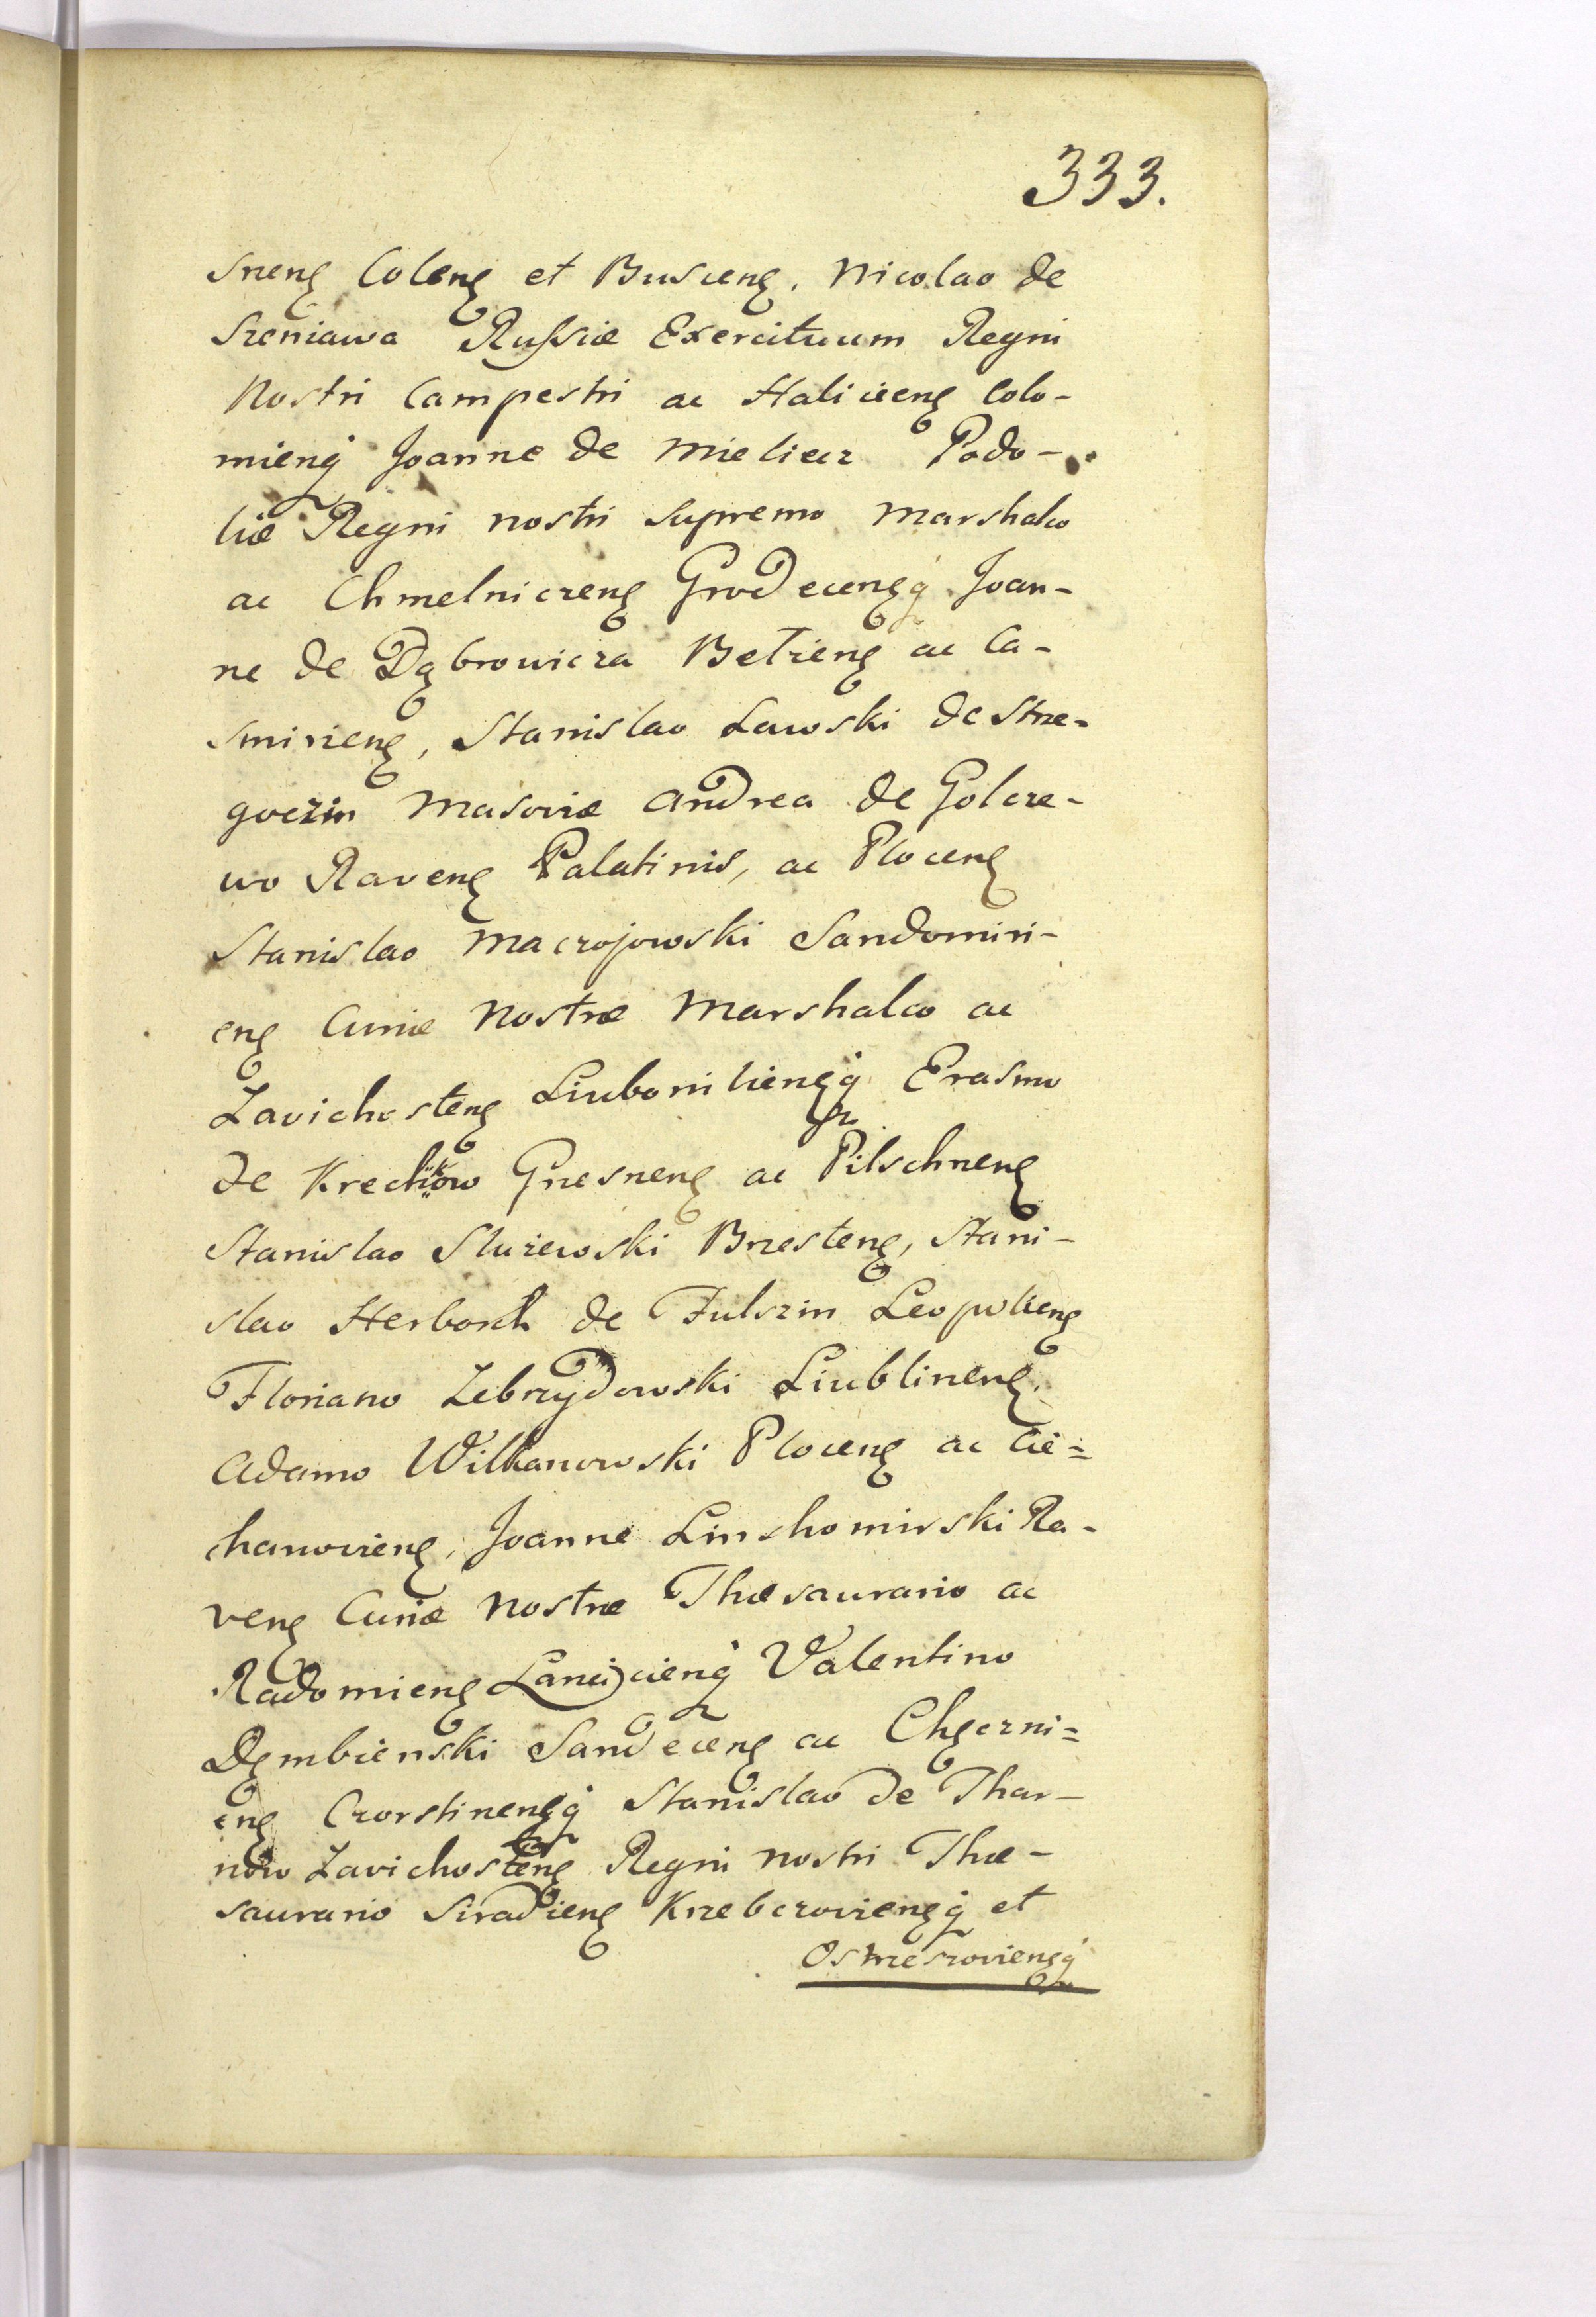 333.
sneng Coleng et Busceng. Nicolao de
Sreniawa Russiæ Exercituum Regni
Nostri Campestri ac Halicieng Colo-
mieng Joanne de Mieliecz Podo-
liæ Regni nostri Supremo Marshalco
ac Chmelniczeng Grodecengq Joan-
ne de Dąbrowicza Betzeng ac Ca-
smirieng, Stanislao Lawski de Strze-
goczin Masoviæ Andrea de Golcze-
wo Raveng Palatinis, ac Ploceng
Stanislao Maczojowski Sandomiri-
eng Curiæ Nostræ Marshalco ac
Zavichosteng Liubomliengq Erasmo
de Krechkow Gnesneng ac Pilschneng
Stanislao Służewski Bresteng, Stani-
slao Herborth de Fulszin Leopolieng
Floriano Zebrzydowski Liublineng.
Adamo Wilkanowski Ploceng ac Cie=
chanovieng, Joanne Linshomirski Ra-
veng Curiæ Nostræ Thæsaurario ac
Radomieng Lancicieng Valentino
Dęmbienski Sandeceng ac Chęczni=
eng Crorstinengq Stanislao de Thar-
now Zavichosteng Regni nostri Thæ-
saurario Siradieng Krzebczoviengq et
Ostrzeszoviengq